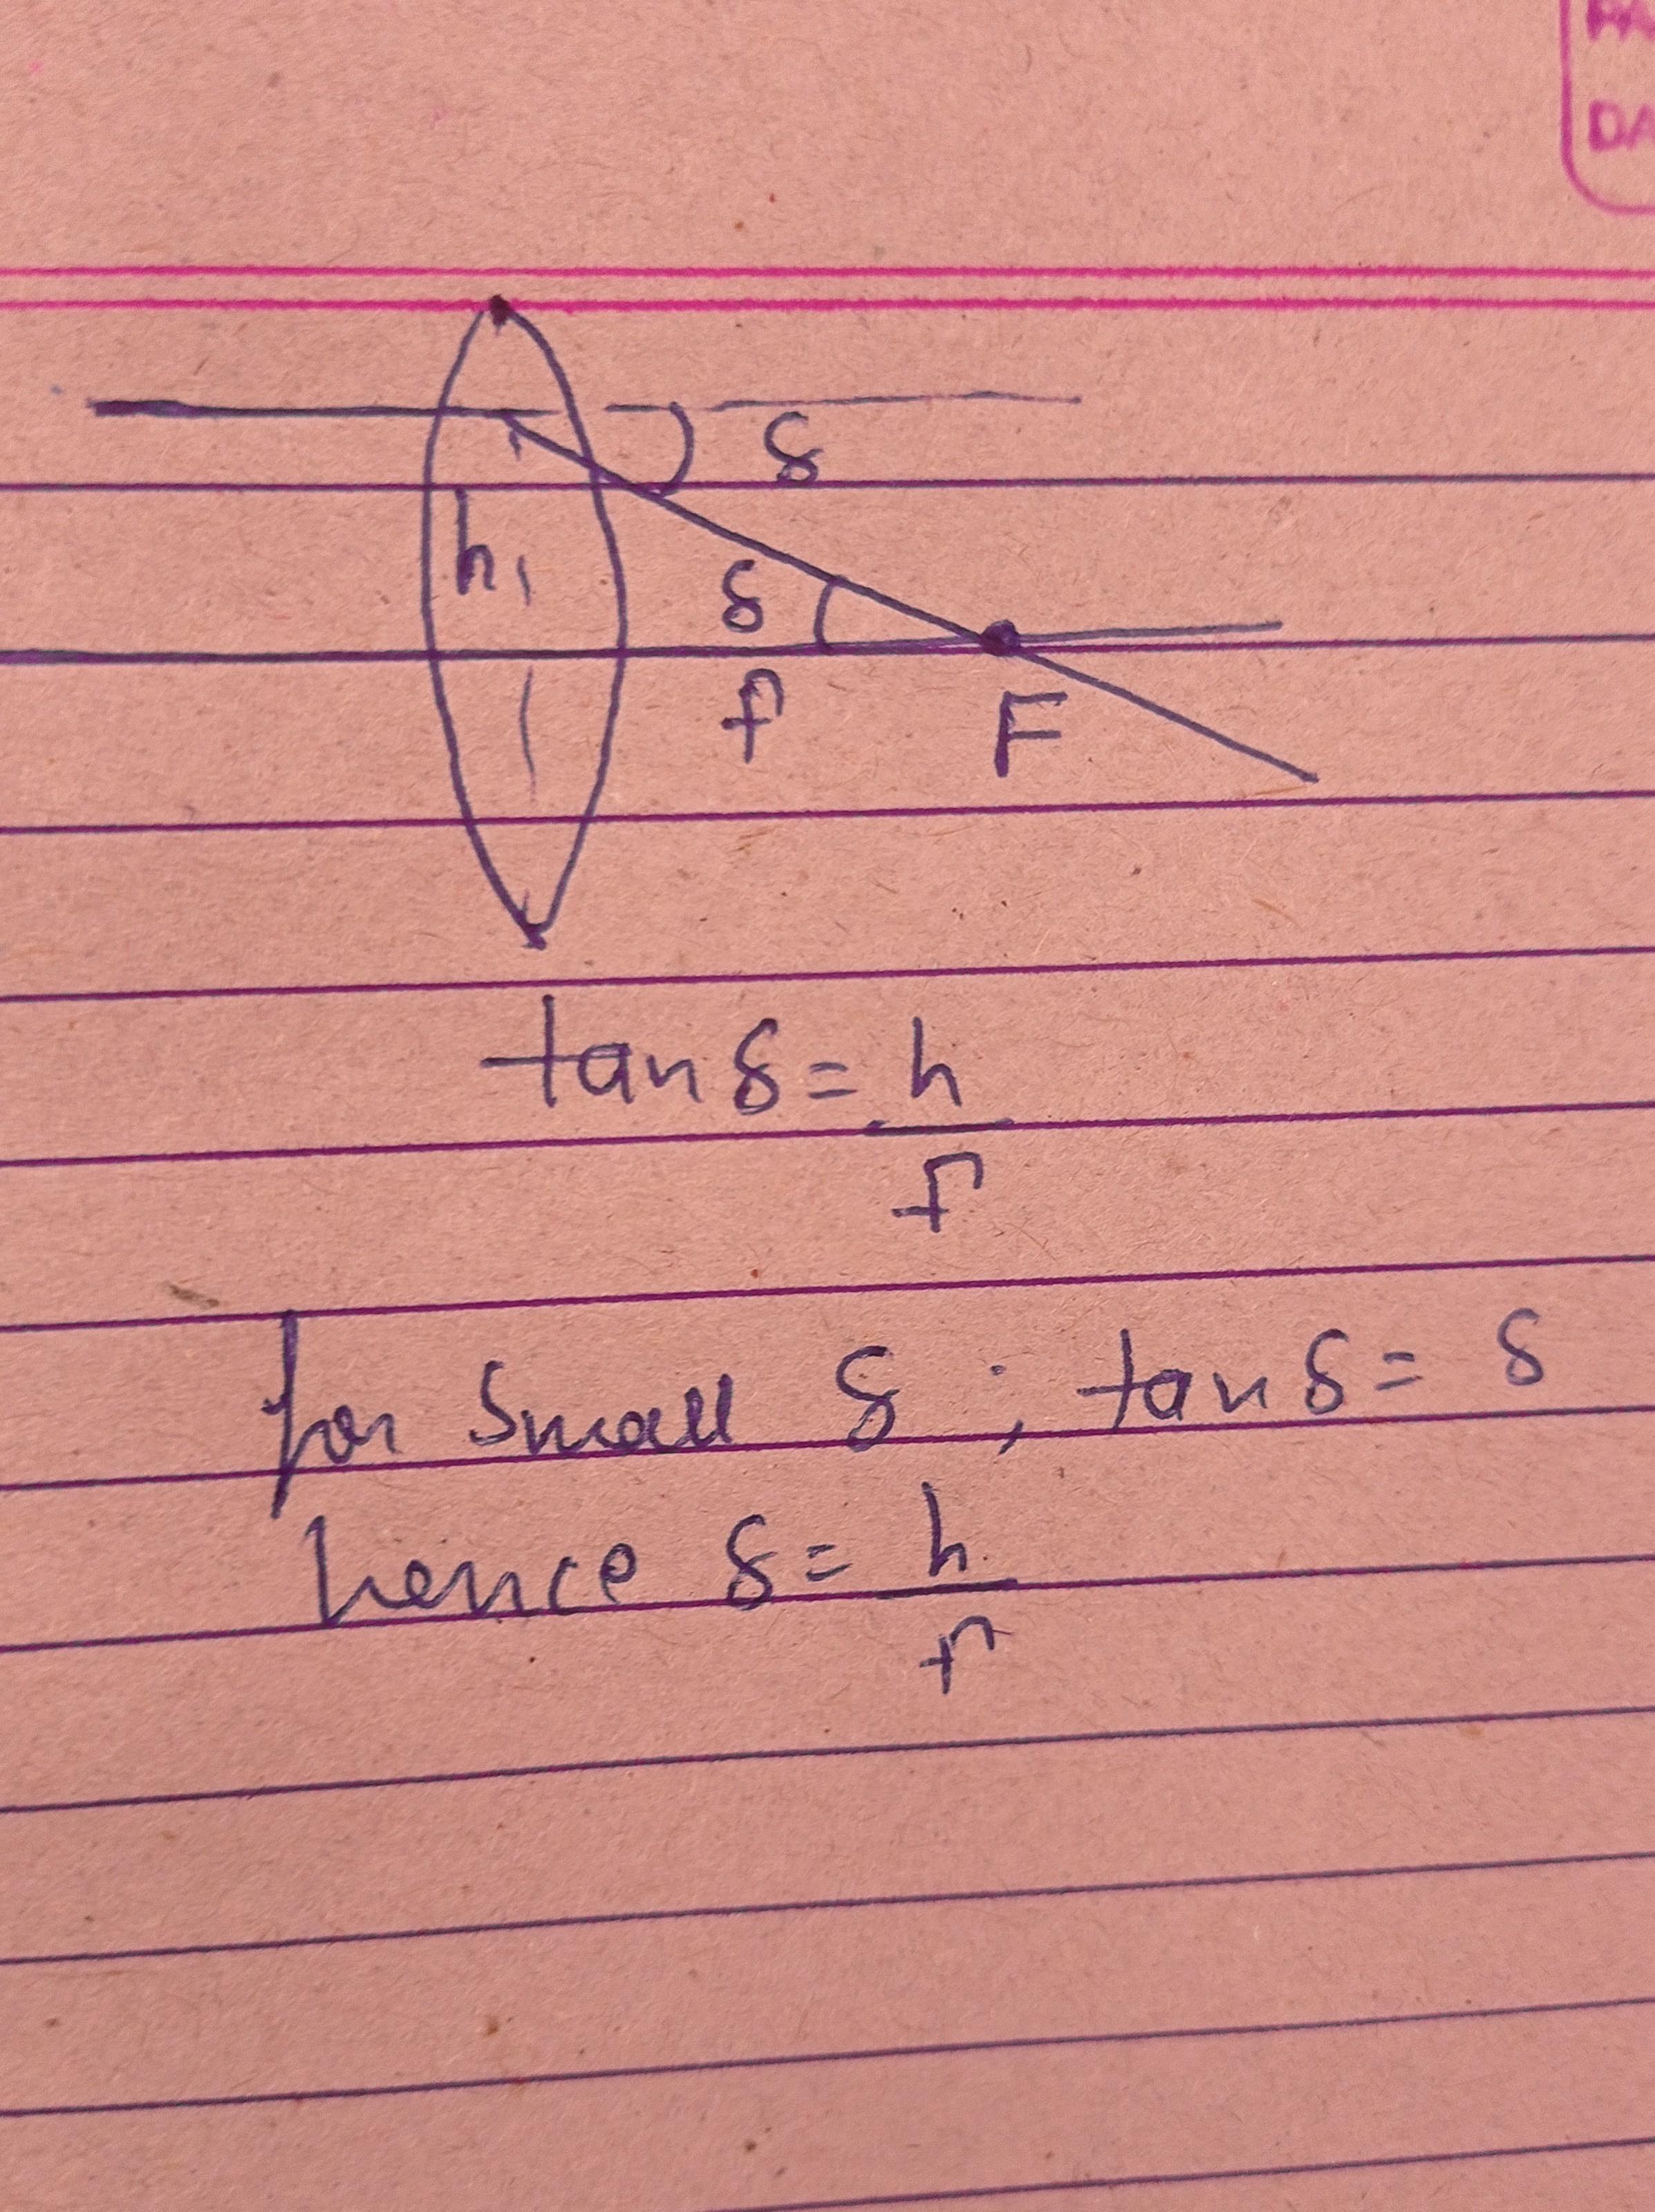 δ
h
δ
f
F
tan δ = h
f
for small δ ; tan δ = δ
hence δ = h
f